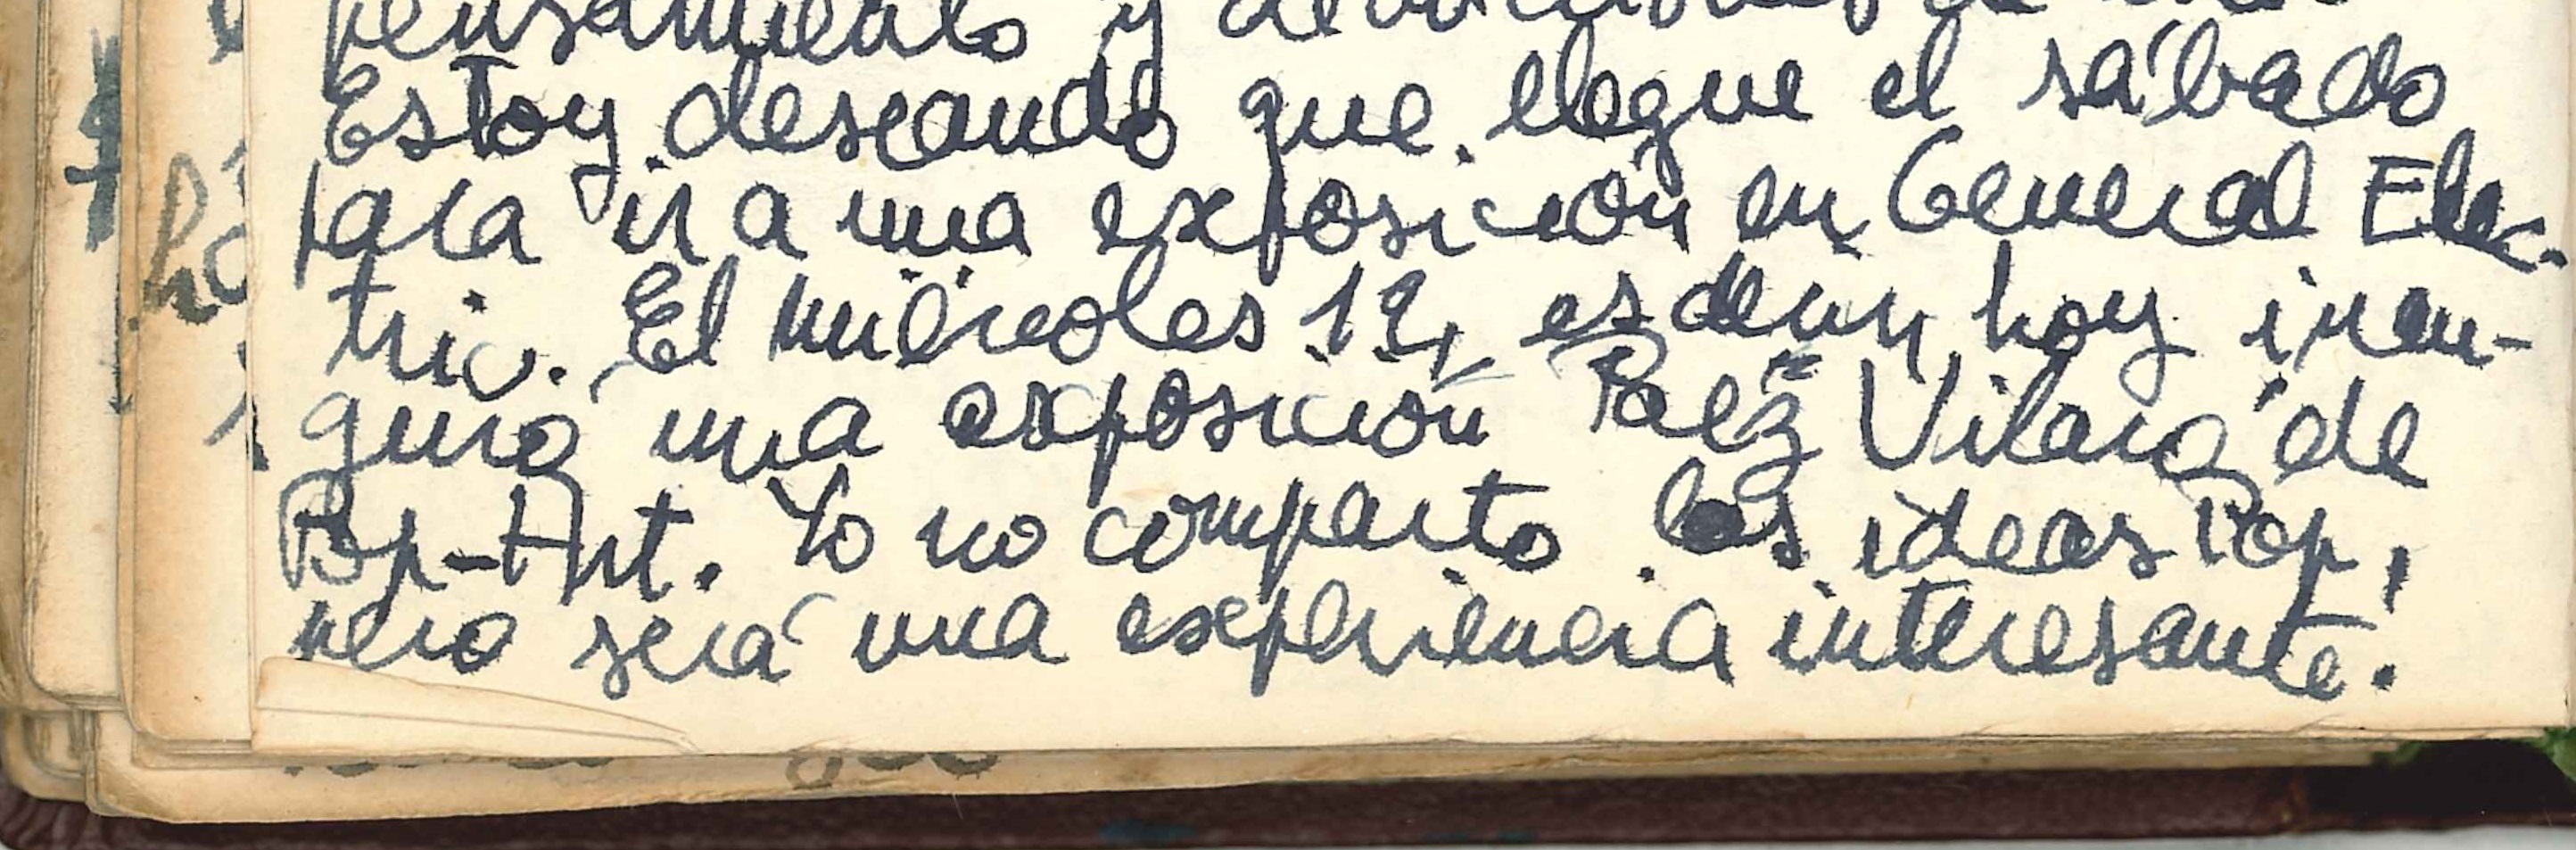 pensamiento y
Estoy deseando que llegue el sábado
para ir a una exposición en General Elec-
tric. El miércoles 12, es decir, hoy inau-
guró una exposición Paez Vilaró de
Pop-Art. Yo no comparto las ideas Pop,
pero será una experiencia interesante.